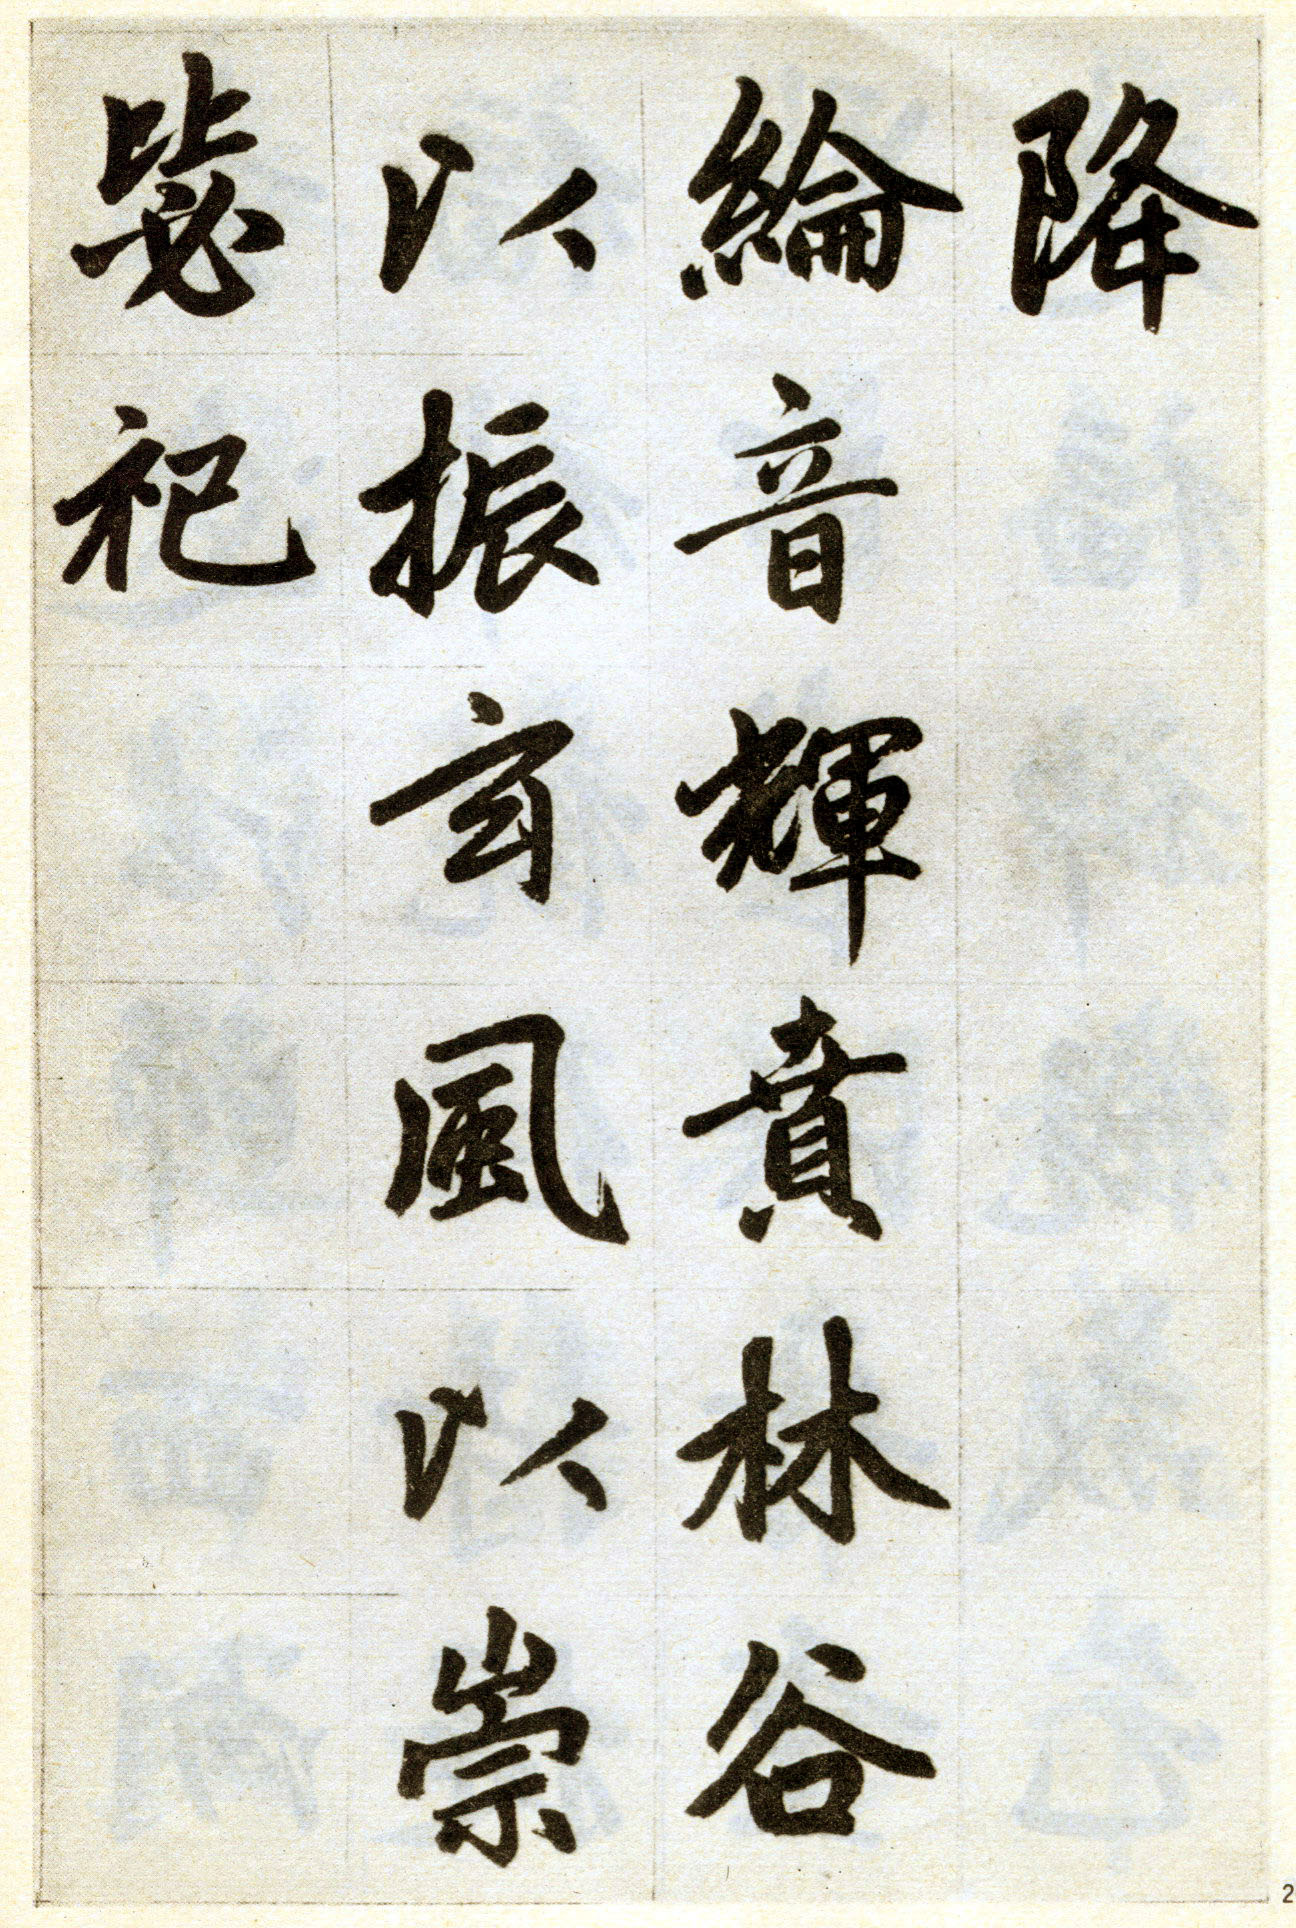 降
綸音輝賁林谷
以振玄風以崇
毖祀
2